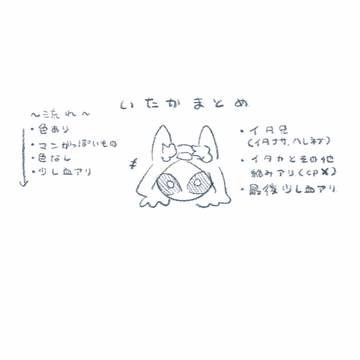 いたかまとめ
〜流れ〜
・色あり
・マンガっぽいもの
・色なし
・少し血アリ
・イタ兄
(イタナサ、ヘレネア)
・イタカとその他
絡みアリ(cpX)
・最後少し血アリ